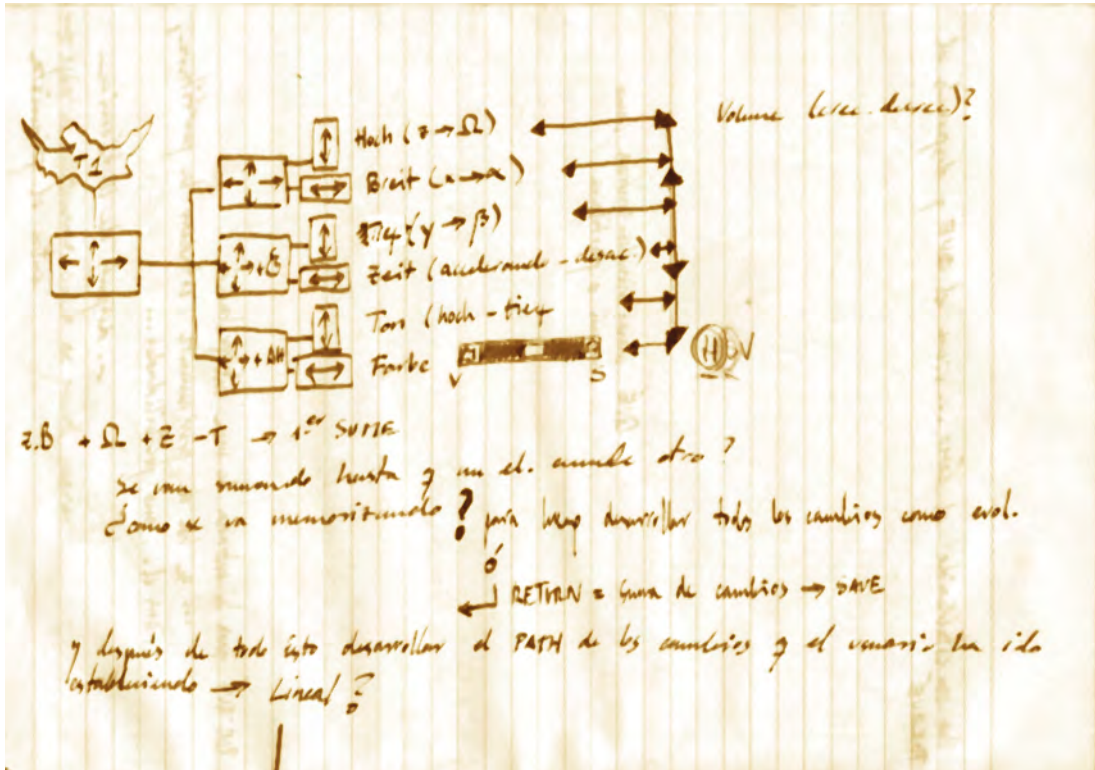 Volume (cresc. decresc.)?
T1
Hoch (z → Ω)
Breit (x → α)
Tief (y → β)
+ Z
Zeit (accelerando - desac.)
Ton (hoch - tief
+ AH
Farbe
V
S
H
V
z.B + Ω + Z - T → 1er SUME
se van sumando hasta q un el. anule otro?
¿como se va memorizando? para luego desarrollar todos los cambios como evol.
ó
RETURN = Suma de cambios → SAVE
y después de todo ésto desarrollar el PATH de los cambios q el usuario ha ido
estableciendo → Lineal?